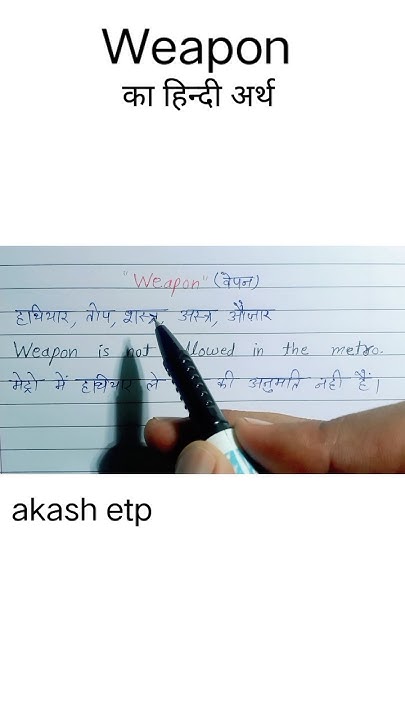 Weapon
का हिन्दी अर्थ
"Weapon" (वेपन)
हथियार, तोप, शस्त्र, अस्त्र, औजार
Weapon is not llowed in the metro.
मेट्रो में हथियार ले की अनुमति नही हैं।
akash etp